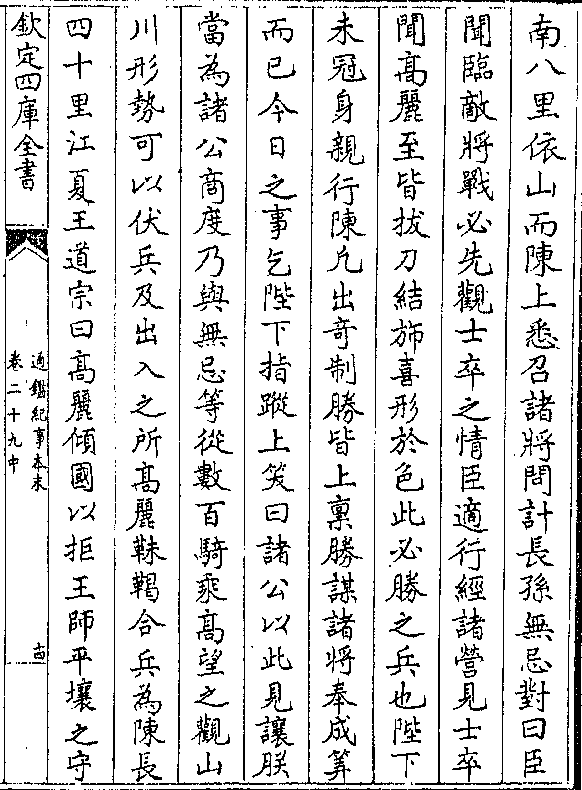 南八里依山而陳上悉召諸將問計長孫無忌對曰臣
聞臨敵將戰必先觀士卒之情臣適行經諸營見士卒
聞高麗至皆拔刀結斾喜形於色此必勝之兵也陛下
未冠身親行陳凡出奇制勝皆上稟勝謀諸將奉成筭
而已今日之事乞陛下指蹤上笑曰諸公以此見讓朕
當為諸公商度乃與無忌等從數百騎乘高望之觀山
川形勢可以伏兵及出入之所高麗靺鞨合兵為陳長
四十里江夏王道宗曰高麗傾國以拒王師平壤之守
欽定四庫全書
通鑑紀事本末
卷二十九中
十四